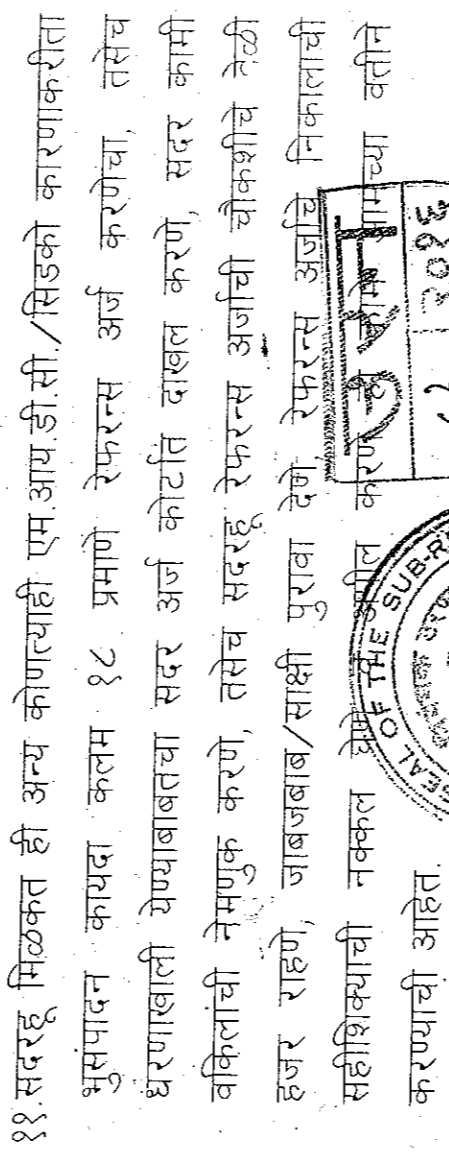 ११.सदरहू मिळकत ही अन्य कोणत्याही एम.आय.डी.सी./सिडको कारणाकरीता
भुसंपादन कायदा कलम १८ प्रमाणे रेफरन्स अर्ज करणेचा, तसेच
धरणाखाली येण्याबाबतचा सदर अर्ज कोर्टात दाखल करणे, सदर कामी
वकिलांची नेमणुक करणे, तसेच सदरहू रेफरन्स अर्जाची चौकशीचे वेळी
हजर राहणे, जाबजबाब/साक्षी पुरावा देणे, रेफरन्स अर्जाचे निकालाची
सहीशिक्याची नक्कल घेणे व अपील करणे ही कामे आमच्या वतीने
करण्याची आहेत.
SEAL OF THE SUB-R
२०१३